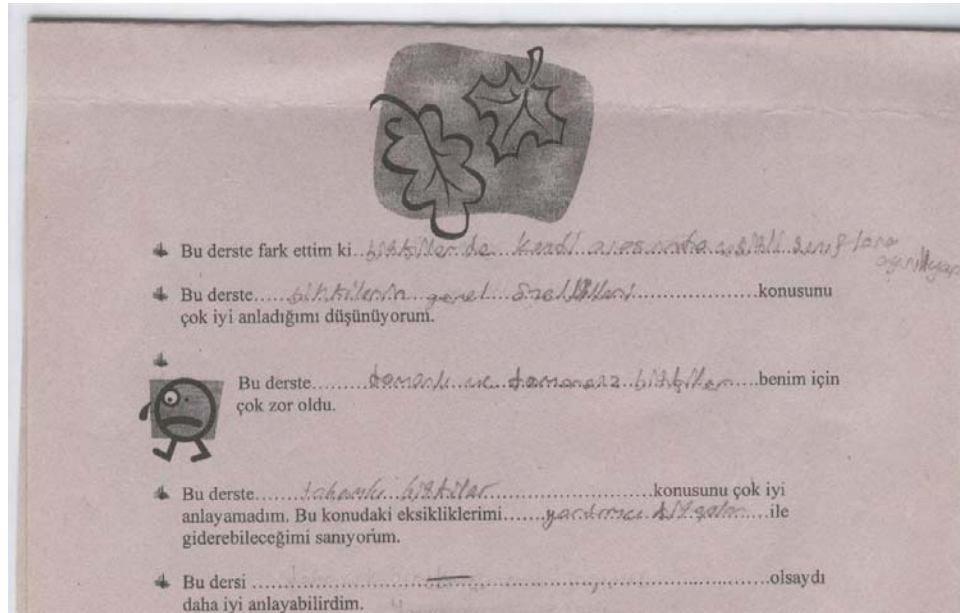 Bu derste fark ettim ki..bitkiler de kendi arasında çeşitli sınıflara
ayrılıyor
Bu derste.....bitkilerin genel özellikleri....................konusunu
çok iyi anladığımı düşünüyorum.
Bu derste........damarlı ve damarsız bitkiler.....benim için
çok zor oldu.
Bu derste.......tohumlu bitkiler..........................konusunu çok iyi
anlayamadım. Bu konudaki eksikliklerimi......yardımcı kitaplar....ile
giderebileceğimi sanıyorum.
Bu dersi ..........................—..................................................olsaydı
daha iyi anlayabilirdim.